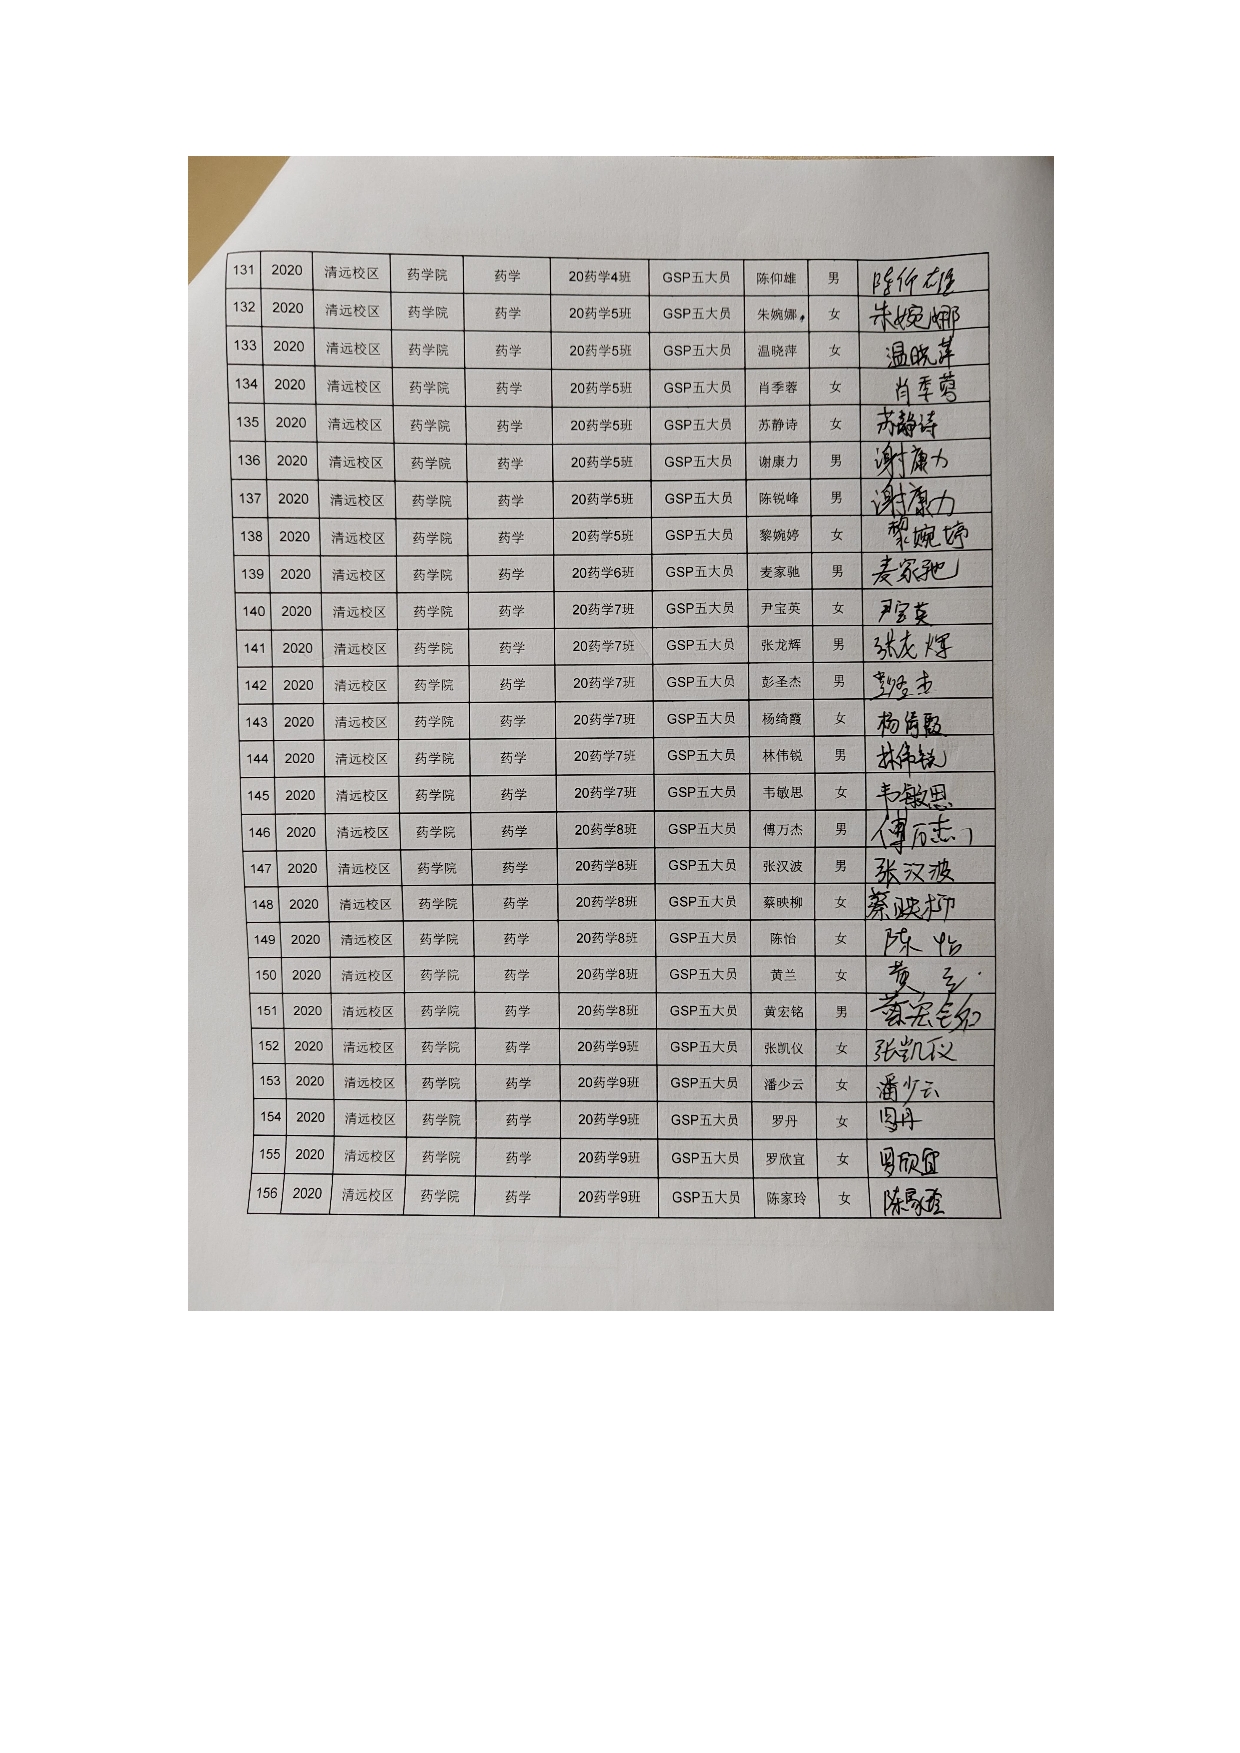 131 2020 清远校区 药学院 药学 20药学4班 GSP五大员 陈仰雄 男 陈仰雄
132 2020 清远校区 药学院 药学 20药学5班 GSP五大员 朱婉娜 女 朱婉娜
133 2020 清远校区 药学院 药学 20药学5班 GSP五大员 温晓萍 女 温晓萍
134 2020 清远校区 药学院 药学 20药学5班 GSP五大员 肖季蓉 女 肖季
135 2020 清远校区 药学院 药学 20药学5班 GSP五大员 苏静诗 女 苏静诗
136 2020 清远校区 药学院 药学 20药学5班 GSP五大员 谢康力 男 谢康力
137 2020 清远校区 药学院 药学 20药学5班 GSP五大员 陈锐峰 男 谢康力
138 2020 清远校区 药学院 药学 20药学5班 GSP五大员 黎婉婷 女 黎婉婷
139 2020 清远校区 药学院 药学 20药学6班 GSP五大员 麦家驰 男 麦家驰
140 2020 清远校区 药学院 药学 20药学7班 GSP五大员 尹宝英 女 尹宝英
141 2020 清远校区 药学院 药学 20药学7班 GSP五大员 张龙辉 男 张龙辉
142 2020 清远校区 药学院 药学 20药学7班 GSP五大员 彭圣杰 男 彭圣杰
143 2020 清远校区 药学院 药学 20药学7班 GSP五大员 杨绮霞 女 杨绮霞
144 2020 清远校区 药学院 药学 20药学7班 GSP五大员 林伟锐 男 林伟锐
145 2020 清远校区 药学院 药学 20药学7班 GSP五大员 韦敏思 女 韦敏思
146 2020 清远校区 药学院 药学 20药学8班 GSP五大员 傅万杰 男 傅万杰
147 2020 清远校区 药学院 药学 20药学8班 GSP五大员 张汉波 男 张汉波
148 2020 清远校区 药学院 药学 20药学8班 GSP五大员 蔡映柳 女 蔡映柳
149 2020 清远校区 药学院 药学 20药学8班 GSP五大员 陈怡 女 陈怡
150 2020 清远校区 药学院 药学 20药学8班 GSP五大员 黄兰 女 黄兰
151 2020 清远校区 药学院 药学 20药学8班 GSP五大员 黄宏铭 男 黄宏铭
152 2020 清远校区 药学院 药学 20药学9班 GSP五大员 张凯仪 女 张凯仪
153 2020 清远校区 药学院 药学 20药学9班 GSP五大员 潘少云 女 潘少云
154 2020 清远校区 药学院 药学 20药学9班 GSP五大员 罗丹 女 罗丹
155 2020 清远校区 药学院 药学 20药学9班 GSP五大员 罗欣宜 女 罗欣宜
156 2020 清远校区 药学院 药学 20药学9班 GSP五大员 陈家玲 女 陈家玲